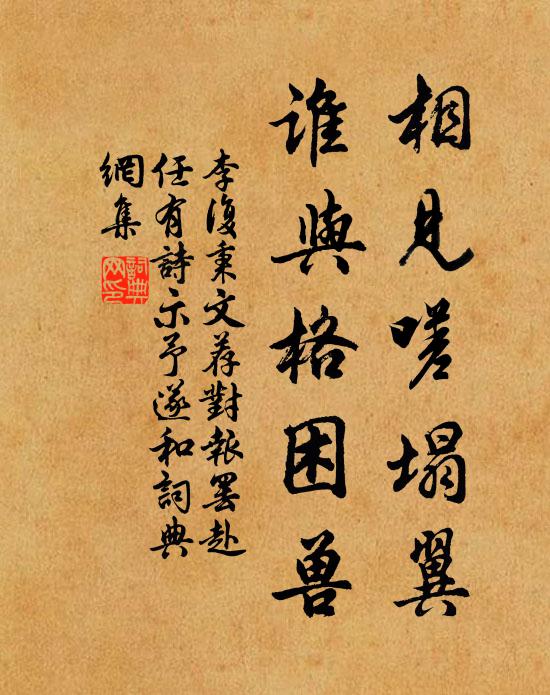 相見嗟塌翼
誰與格困兽
李復秉文荐對報罢赴
任有詩示予遂和詞典
網集
詞典
网印